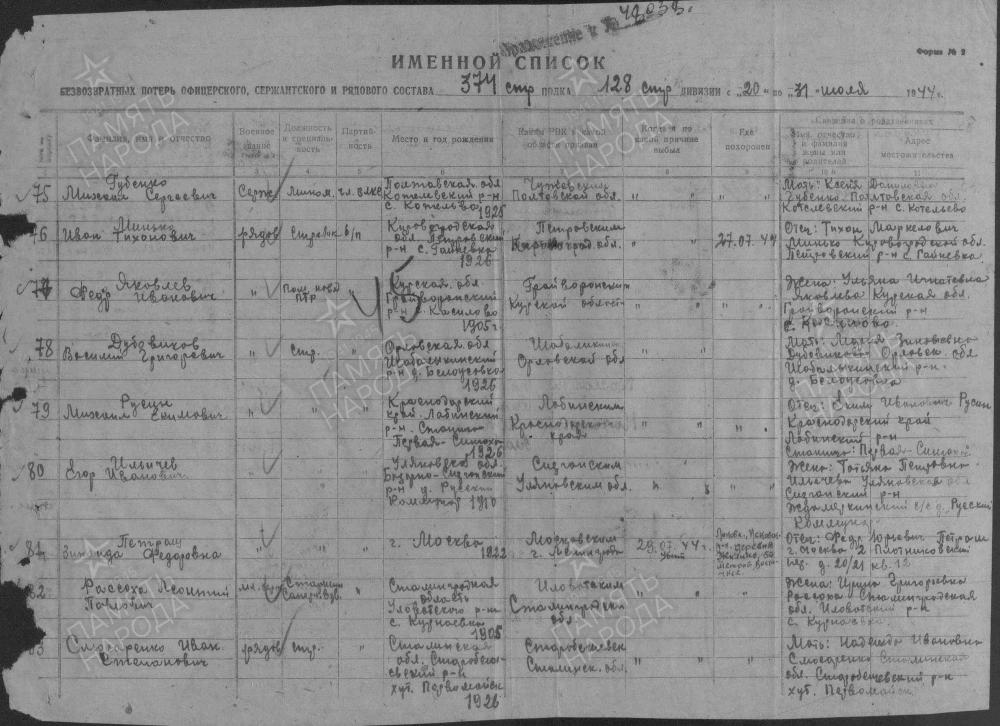 Приложение к № 49039.
Форма № 2
ИМЕННОЙ СПИСОК
БЕЗВОЗВРАТНЫХ ПОТЕРЬ ОФИЦЕРСКОГО, СЕРЖАНТСКОГО И РЯДОВОГО СОСТАВА 374 стр ПОЛКА 128 стр ДИВИЗИИ с „20" по „31" июля 1944 г.
Фамилия, имя и отчество
Военное звание
Должность и специальность
Партийность
Место и год рождения
Каким РВК и какой области призван
Когда и по какой причине выбыл
Где похоронен
Сведения о родственниках
Имя, отчество и фамилия жены или родителей
Адрес местожительства
75 Губенко
Михаил Сергеевич
Серж.
Полтавская обл
Котелевский р-н
с. Котельва
1925
Полтовской обл.
Мать: Ксения
Губенко Полтовская обл.
Котелевский р-н с. Котельево
76 Минько
Иван Тихонович
рядов
Стрелок б/п
Кировогродская
обл. Петровский
р-н с. Ганевка
1926
Петровским
обл.
27.07.44
Отец: Тихон Маркелович
Минько Кировогродской обл.
Петровский р-н с. Ганевка
77 Яковлев
Федр Иванович
"
ПТР
Курская обл.
Грайворонский
р-н с. Касилово
1905 г.
Грайворонским
Курской области
Жена: Ульяна Игнатевна
Яковлева Курская обл.
Грайворонский р-н
78 Дубовиков
Василий Григоревич
"
стр.
"
Орловская обл
Шаблыкинский
р-н д. Белоусовка
1926
Шаблыкинским
Орловской обл
Мать: Мария Зиновевна
Дубовикова Орловск. обл
Шаблыкинский р-н
д. Белоусовка
79 Русин
Михаил Екимович
"
"
"
Краснодарский
край Лабинский
р-н Станица
Первая-Синюха
1926
Лабинским
Краснодарского
края
Отец: Еким Иванович Русин
Краснодарский край
Лабинский р-н
Станица Первая-Синюха
80 Ильичев
Егор Иванович
"
"
Уляновска обл.
р-н д. Русский
Коммунар 1910
Уляновским обл.
Жена: Татьяна Петровна
Ильичева Уляновская обл
р-н
с/с д. Русский
Коммунар
81 Петраш
Зинаида Федоровна
"
"
г. Москва
1922
Московским
г. Ленинграда
29.07.44 г.
Убит
Отец: Федр Юрьевич Петраш
г. Москва 2 Плотниковский
пер. д. 20/21 кв. 12
82 Рассоха Леонтий
Павлович
Старшин
Сталинградская
область
Иловатского р-н
с. Курнаевка
1905
Иловатским
Сталинградской
обл.
Жена: Ирина Григоревна
Рассоха Сталинградская
обл. Иловатский р-н
с. Курнаевка
83 Слюсаренко Иван
Степанович
рядов
стр.
"
Сталинская
обл. Старобешевский р-н
хут. Первомайск
1926
Старобешевск
Сталинск. обл.
Мать: Надежда Ивановна
Слюсаренко Сталинская
обл. Старобешевский р-н
хут. Первомайск
ПАМЯТЬ
НАРОДА